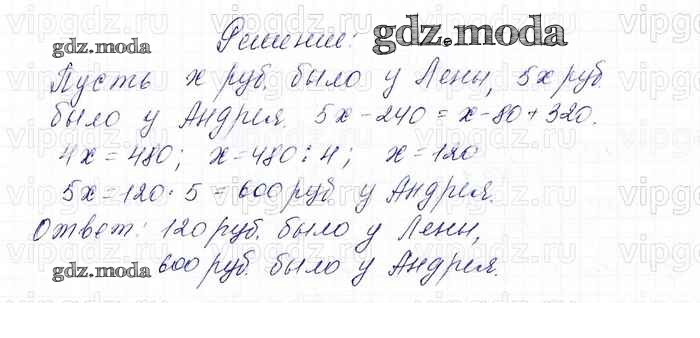 Решение: gdz.moda
gdz.moda
Пусть х руб. было у Лены, 5х руб.
было у Андрея. 5х - 240 = х - 80 + 320.
4х = 480; х = 480 : 4; х = 120
5х = 120 · 5 = 600 руб. у Андрея.
Ответ: 120 руб. было у Лены,
gdz.moda 600 руб. было у Андрея.